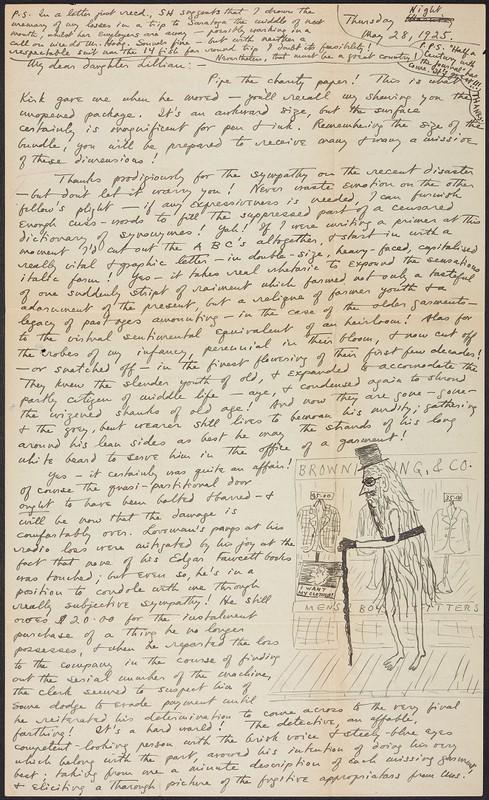 P.S. In a letter just recd., SH suggests that I drown the
memory of my losses in a trip to Saratoga the middle of next
month, whilst her employers are away — possibly working in a
call on us de Mr. Hoag. Sounds fine — but with neither a
respectable suit nor the 14 fish for round trip I doubt its feasibility!
Nevertheless, that must be a great country!
Thursday Night
May 28, 1925.
P.P.S. Half a
Century with
the
came
My dear daughter Lillian:—
Pipe the charity paper! This is what
Kirk gave me when he moved — you'll recall my shewing you the
unopened package. It's an awkward size, but the surface
certainly is magnificent for pen & ink. Remembering the size of the
bundle, you will be prepared to receive many & many a missive
of these dimensions!
Thanks prodigiously for the sympathy on the recent disaster
— but don't let it worry you! Never waste emotion on the other
fellow's plight — if any expressiveness is needed, I can furnish
enough cuss-words to fill the suppressed part of a censored
dictionary of synonymes! Yah! If I were writing a primer at this
moment I'd cut out the A B C's altogether, & start in with a
really vital & graphic letter — in double-size, heavy-faced, capitalised
italic form! Yes — it takes real rhetoric to expound the sensations
of one suddenly stript of raiment which formed not only a tasteful
adornment of the present, but a relique of former youth & a
legacy of past ages amounting — in the case of the older garments —
to the virtual sentimental equivalent of an heirloom! Alas for
the robes of my infancy, perennial in their bloom, & now cut off
— or snatched off — in the finest flowering of their first few decades!
They knew the slender youth of old, & expanded to accomodate the
portly citizen of middle life — aye, & condensed again to shroud
the wizened shanks of old age! And now they are gone — gone —
& the grey, bent wearer still lives to bemoan his nudity; gathering
around his lean sides as best he may the strands of his long
white beard to serve him in the office of a garment!
Yes — it certainly was quite an affair!
Of course the quasi-partitional door
ought to have been bolted & barred — &
will be now that the damage is
comfortably over. Loveman's pangs at his
radio loss were mitigated by his joy at the
fact that none of his Edgar Fawcett books
was touched; but even so, he's in a
position to condole with me through
really subjective sympathy! He still
owes $20.00 for the instalment
purchase of a thing he no longer
possesses, & when he reported the loss
to the company in the course of finding
out the serial number of the machine,
the clerk seemed to suspect him of
some dodge to evade payment until
he reiterated his determination to come across to the very final
farthing! It's a hard world! The detective, an affable,
competent-looking person with the brisk voice & steely-blue eyes
which belong with the part, avowed his intention of doing his very
best; taking from me a minute description of each missing garment,
& eliciting a thorough picture of the fugitive appropriators from us!
BROWN NING, & CO.
35.00
35.00
I WANT
MY CLOTHES!
MENS BOY TTERS